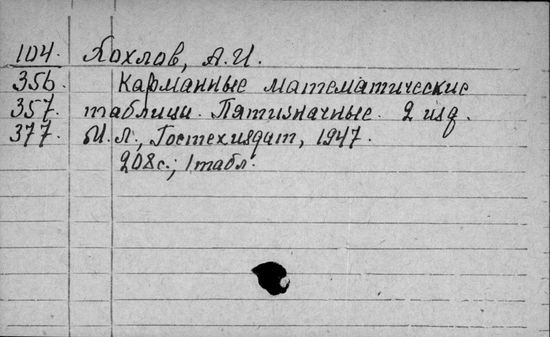 104. Хохлов, А.И.
356. Карманные математические
357. таблицы. Пятизначные. 2 изд.
377. М.Л., Гостехиздат, 1947.
208с.; 1 табл.